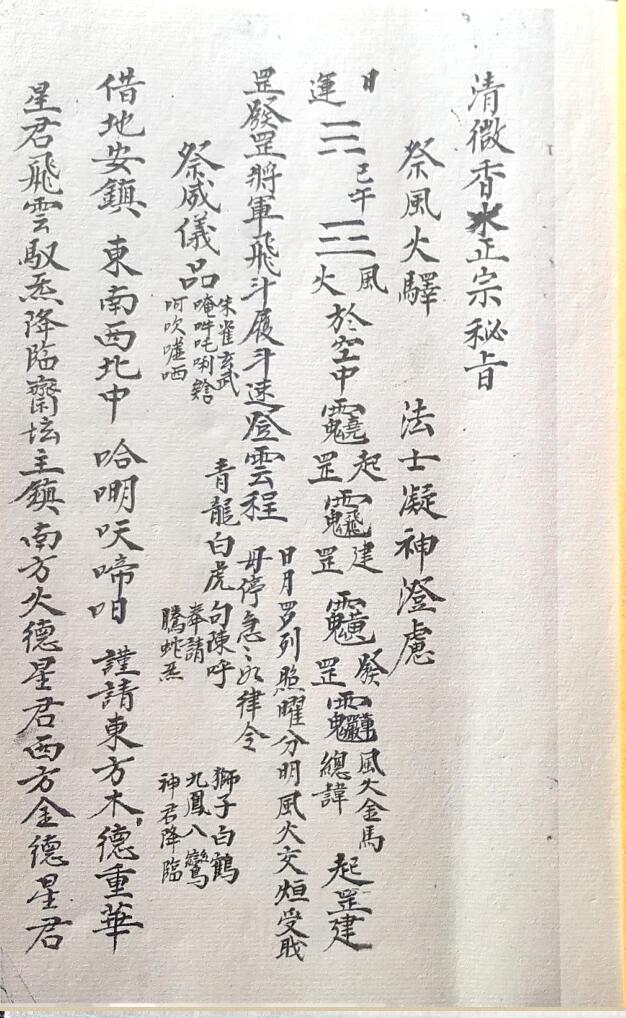 清微香水正宗秘旨
祭風火驛 法士凝神澄慮
日
運 三 巳午 三 風火 於空中 起罡 建罡 發罡 風火金馬 總諱 起罡建
罡發罡將軍飛斗履斗速登雲程
日月罗列照曜分明風火交烜受戝
毋停急〻如律令
祭威儀品
朱雀玄武
唵吽吒唎
呵吹噓哂
青龍白虎句陳呼
奉請
騰蛇炁
獅子白鶴
九鳳八鸞
神君降臨
借地安鎮 東南西北中 哈哵呋啼呬 謹請東方木德重華
星君飛雲馭炁降臨齋坛主鎮南方火德星君西方金德星君